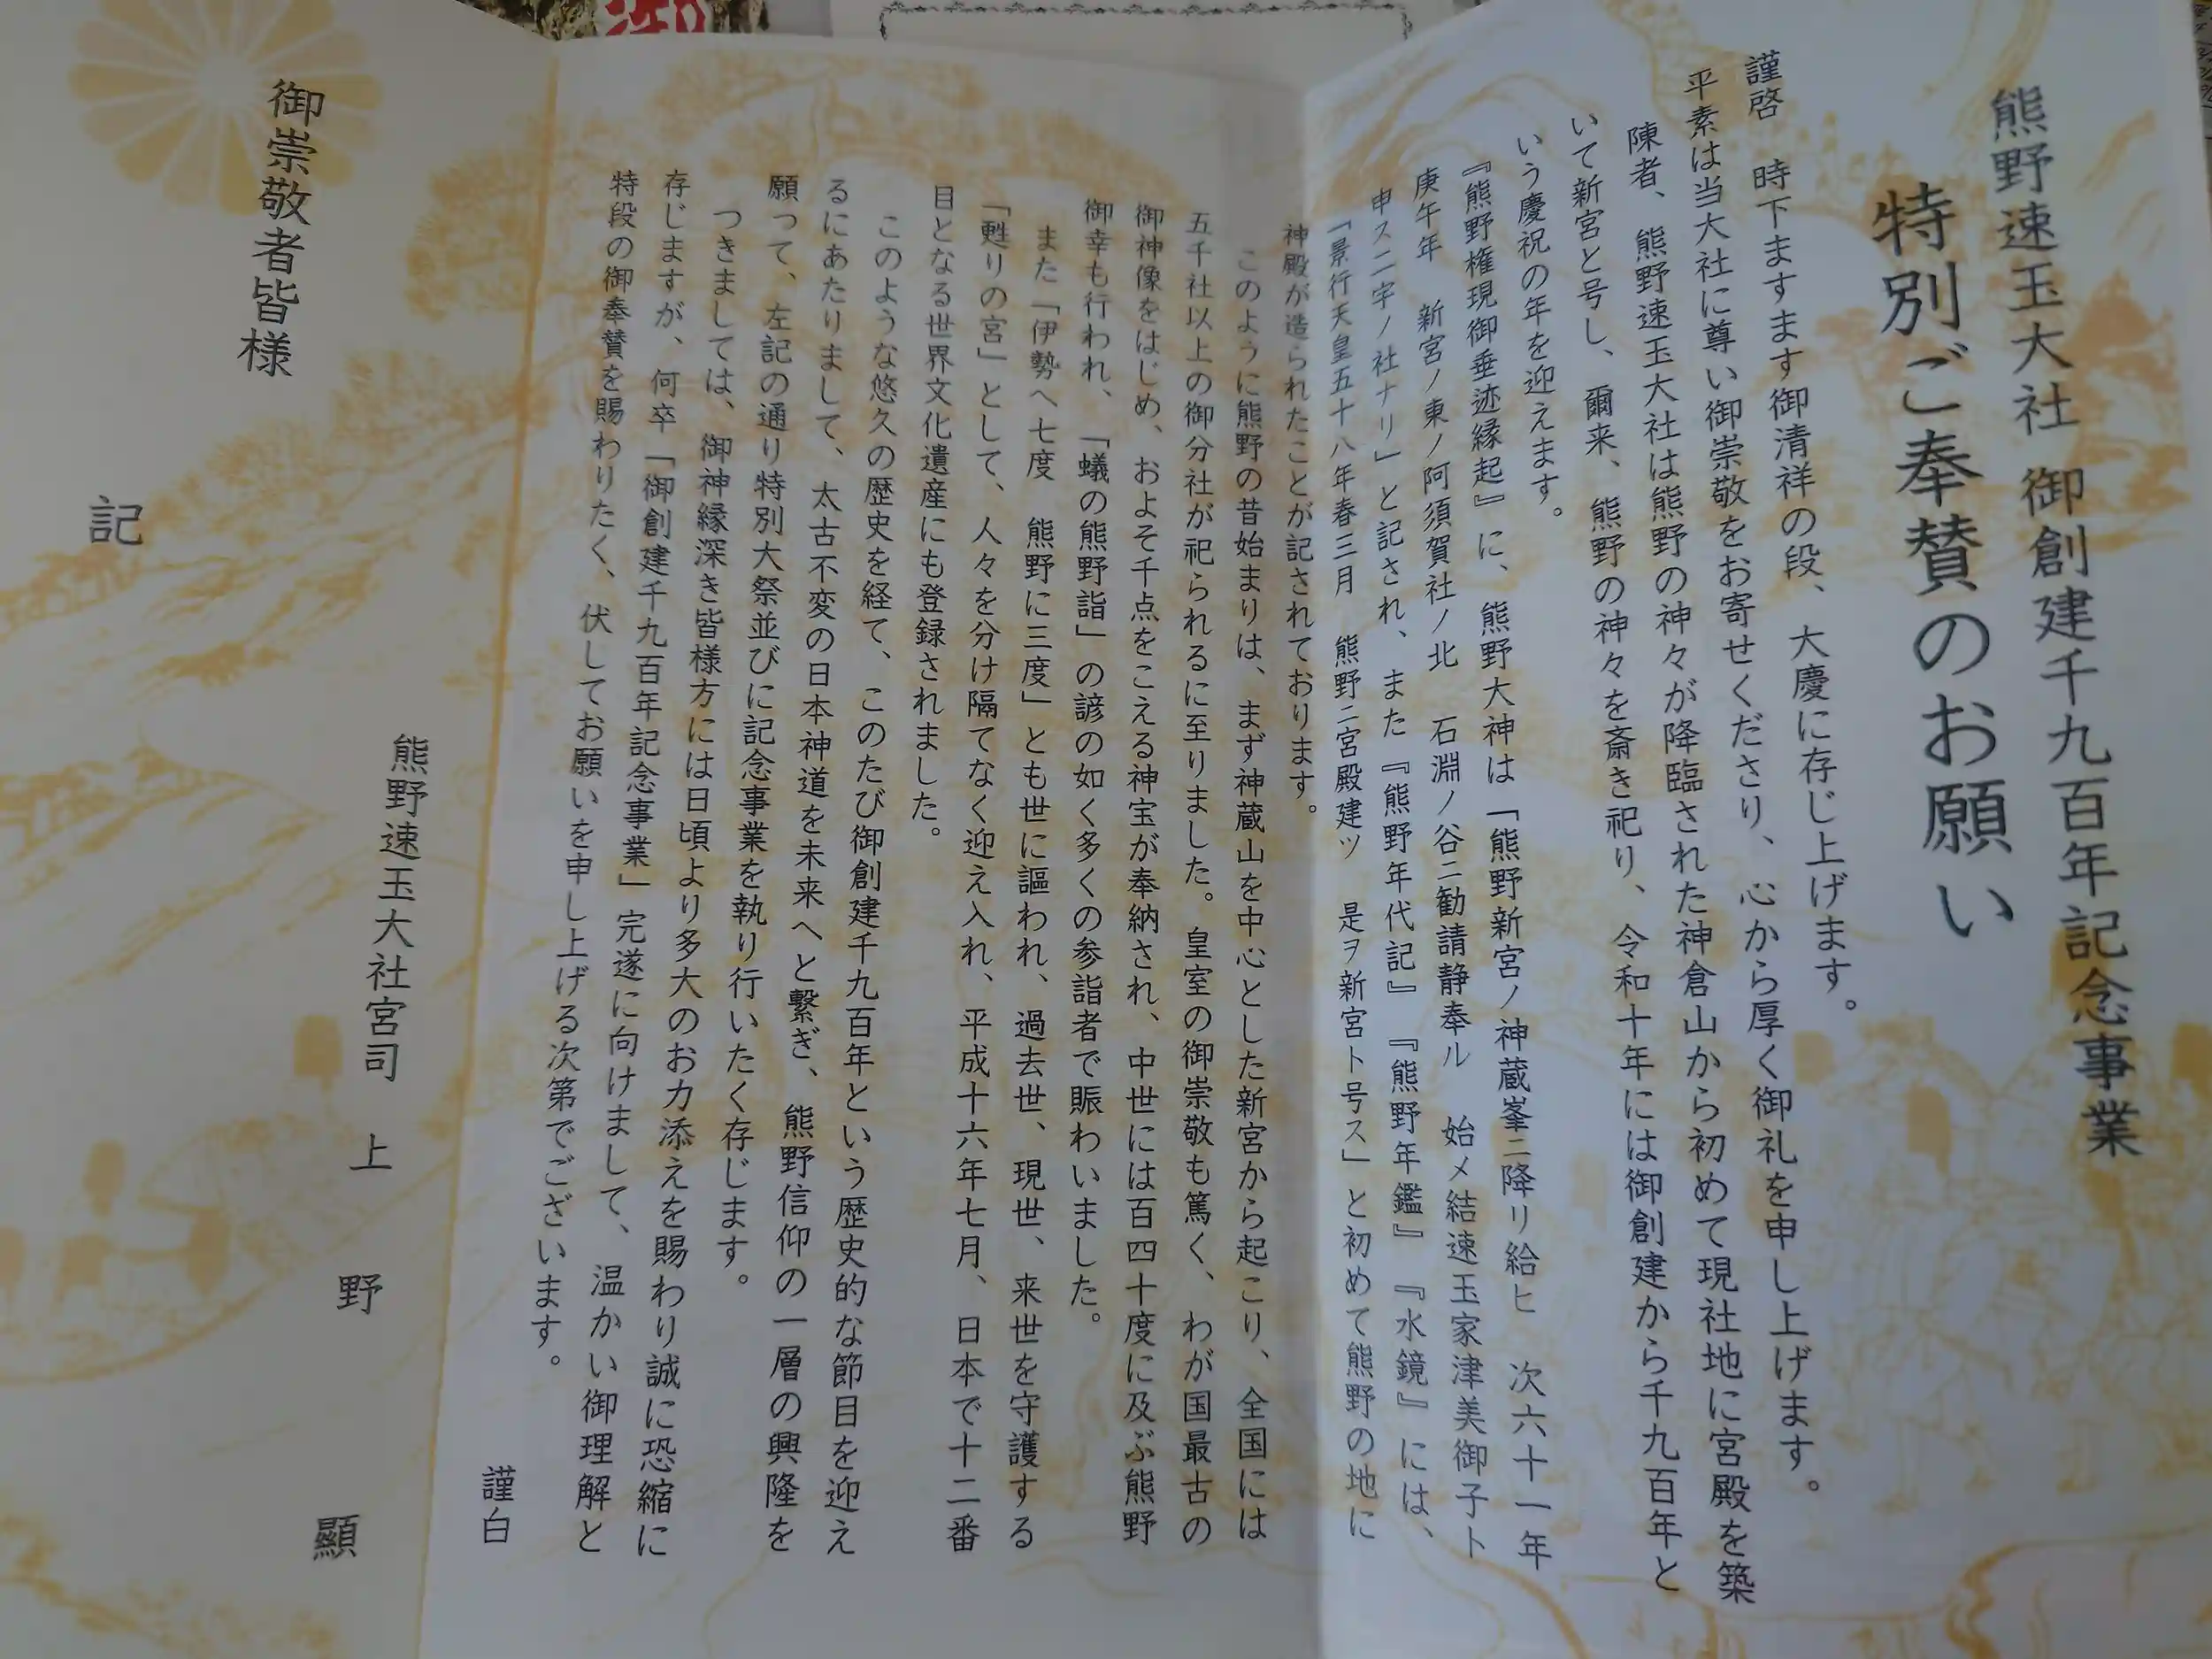 熊野速玉大社 御創建千九百年記念事業
特別ご奉賛のお願い
謹啓 時下ますます御清祥の段、大慶に存じ上げます。
平素は当大社に尊い御崇敬をお寄せくださり、心から厚く御礼を申し上げます。
陳者、熊野速玉大社は熊野の神々が降臨された神倉山から初めて現社地に宮殿を築
いて新宮と号し、爾来、熊野の神々を斎き祀り、令和十年には御創建から千九百年と
いう慶祝の年を迎えます。
『熊野権現御垂迹縁起』に、熊野大神は「熊野新宮ノ神蔵峯ニ降リ給ヒ 次六十一年
庚午年 新宮ノ東ノ阿須賀社ノ北 石淵ノ谷ニ勧請静奉ル 始メ結速玉家津美御子ト
申ス二宇ノ社ナリ」と記され、また『熊野年代記』『熊野年鑑』『水鏡』には、
「景行天皇五十八年春三月 熊野ニ宮殿建ツ 是ヲ新宮ト号ス」と初めて熊野の地に
神殿が造られたことが記されております。
このように熊野の昔始まりは、まず神蔵山を中心とした新宮から起こり、全国には
五千社以上の御分社が祀られるに至りました。皇室の御崇敬も篤く、わが国最古の
御神像をはじめ、およそ千点をこえる神宝が奉納され、中世には百四十度に及ぶ熊野
御幸も行われ、「蟻の熊野詣」の諺の如く多くの参詣者で賑わいました。
また「伊勢へ七度 熊野に三度」とも世に謳われ、過去世、現世、来世を守護する
「甦りの宮」として、人々を分け隔てなく迎え入れ、平成十六年七月、日本で十二番
目となる世界文化遺産にも登録されました。
このような悠久の歴史を経て、このたび御創建千九百年という歴史的な節目を迎え
るにあたりまして、太古不変の日本神道を未来へと繋ぎ、熊野信仰の一層の興隆を
願って、左記の通り特別大祭並びに記念事業を執り行いたく存じます。
つきましては、御神縁深き皆様方には日頃より多大のお力添えを賜わり誠に恐縮に
存じますが、何卒「御創建千九百年記念事業」完遂に向けまして、温かい御理解と
特段の御奉賛を賜わりたく、伏してお願いを申し上げる次第でございます。
謹白
熊野速玉大社宮司 上野 顯
御崇敬者皆様
記